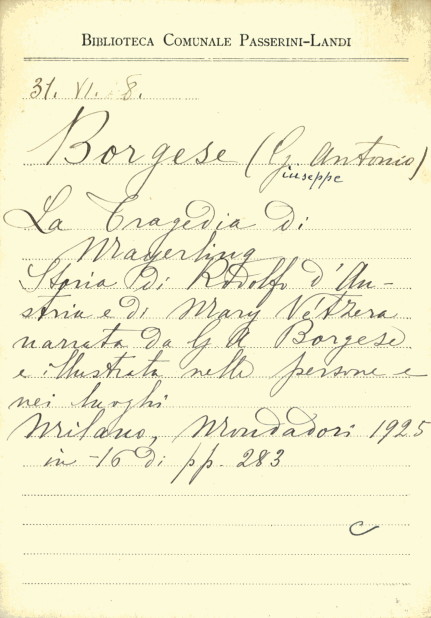 BIBLIOTECA COMUNALE PASSERINI-LANDI
31. VI. 8.
Borgese (G. Antonio)
iuseppe
La Tragedia di
Mayerling
Storia di Rodolfo d'Au-
stria e di Mary Vétzera
narrata da G A Borgese
e illustrata nelle persone e
nei luoghi
Milano, Mondadori 1925
in-16 di pp. 283
C